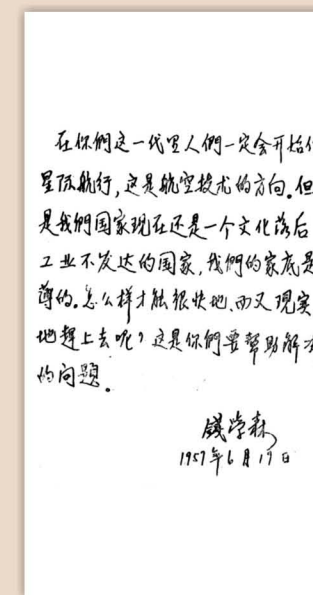 在你們这一代里人們一定会开始作
星际航行，这是航空技术的方向。但
是我們国家现在还是一个文化落后、
工业不发达的国家，我們的家底是
薄的。怎么样才能很快地、而又现实
地趕上去呢？这是你們要幫助解决
的问题。
錢学森
1957年6月17日